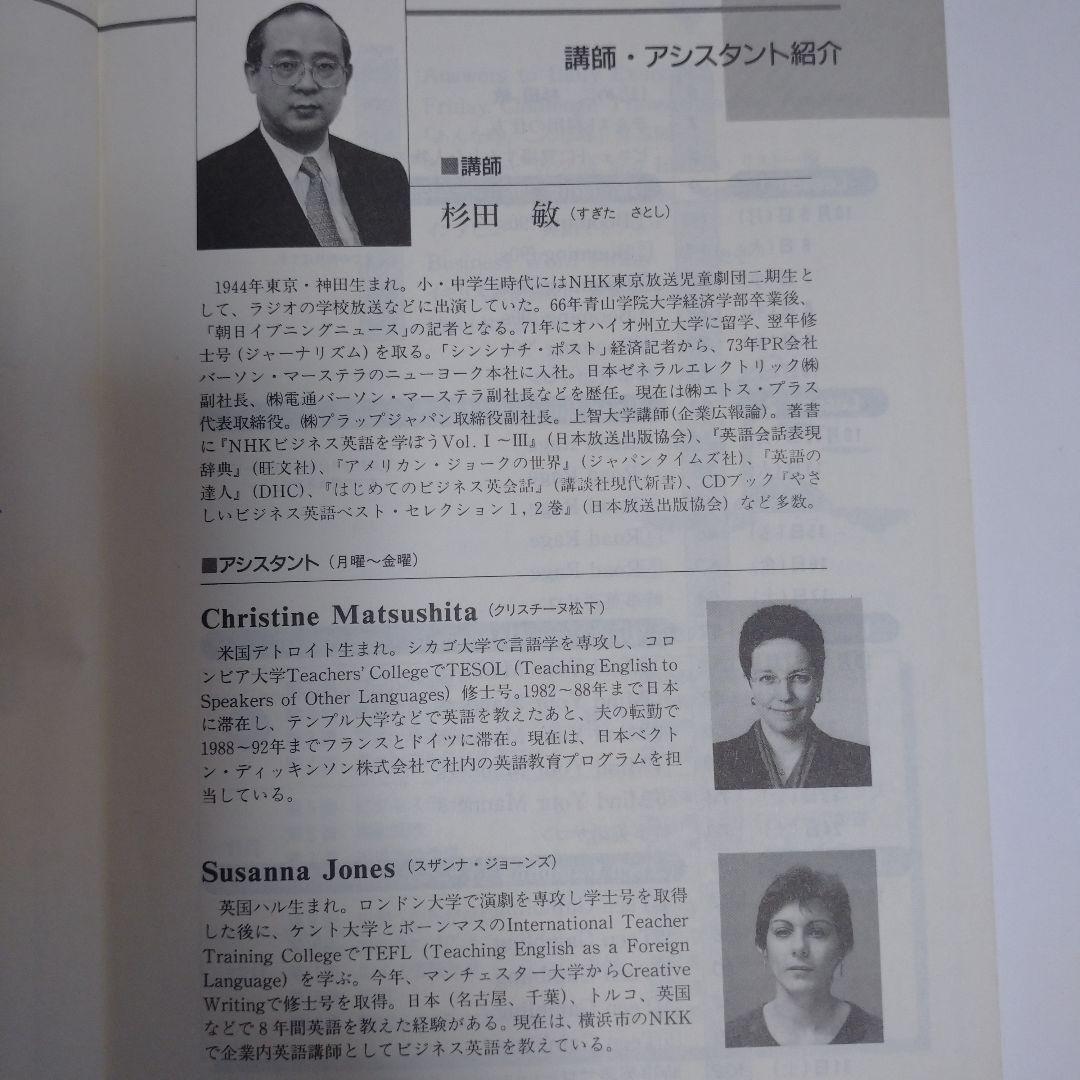 講師・アシスタント紹介
■講師
杉田　敏（すぎた　さとし）
1944年東京・神田生まれ。小・中学生時代にはNHK東京放送児童劇団二期生と
して、ラジオの学校放送などに出演していた。66年青山学院大学経済学部卒業後、
「朝日イブニングニュース」の記者となる。71年にオハイオ州立大学に留学、翌年修
士号（ジャーナリズム）を取る。「シンシナチ・ポスト」経済記者から、73年PR会社
バーソン・マーステラのニューヨーク本社に入社。日本ゼネラルエレクトリック㈱
副社長、㈱電通バーソン・マーステラ副社長などを歴任。現在は㈱エトス・プラス
代表取締役。㈱プラップジャパン取締役副社長。上智大学講師（企業広報論）。著書
に『NHKビジネス英語を学ぼうVol.Ⅰ～Ⅲ』（日本放送出版協会）、『英語会話表現
辞典』（旺文社）、『アメリカン・ジョークの世界』（ジャパンタイムズ社）、『英語の
達人』（DHC）、『はじめてのビジネス英会話』（講談社現代新書）、CDブック『やさ
しいビジネス英語ベスト・セレクション1, 2巻』（日本放送出版協会）など多数。
■アシスタント（月曜～金曜）
Christine Matsushita（クリスチーヌ松下）
米国デトロイト生まれ。シカゴ大学で言語学を専攻し、コロ
ンビア大学Teachers' CollegeでTESOL（Teaching English to
Speakers of Other Languages）修士号。1982～88年まで日本
に滞在し、テンプル大学などで英語を教えたあと、夫の転勤で
1988～92年までフランスとドイツに滞在。現在は、日本ベクト
ン・ディッキンソン株式会社で社内の英語教育プログラムを担
当している。
Susanna Jones（スザンナ・ジョーンズ）
英国ハル生まれ。ロンドン大学で演劇を専攻し学士号を取得
した後に、ケント大学とボーンマスのInternational Teacher
Training CollegeでTEFL（Teaching English as a Foreign
Language）を学ぶ。今年、マンチェスター大学からCreative
Writingで修士号を取得。日本（名古屋、千葉）、トルコ、英国
などで8年間英語を教えた経験がある。現在は、横浜市のNKK
で企業内英語講師としてビジネス英語を教えている。